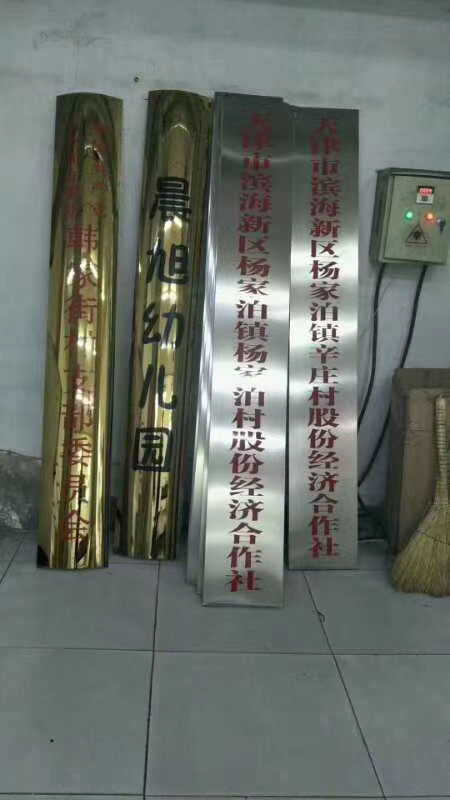 韩家街村支部委员会
晨旭幼儿园
天津市滨海新区杨家泊镇杨家泊村股份经济合作社
天津市滨海新区杨家泊镇辛庄村股份经济合作社